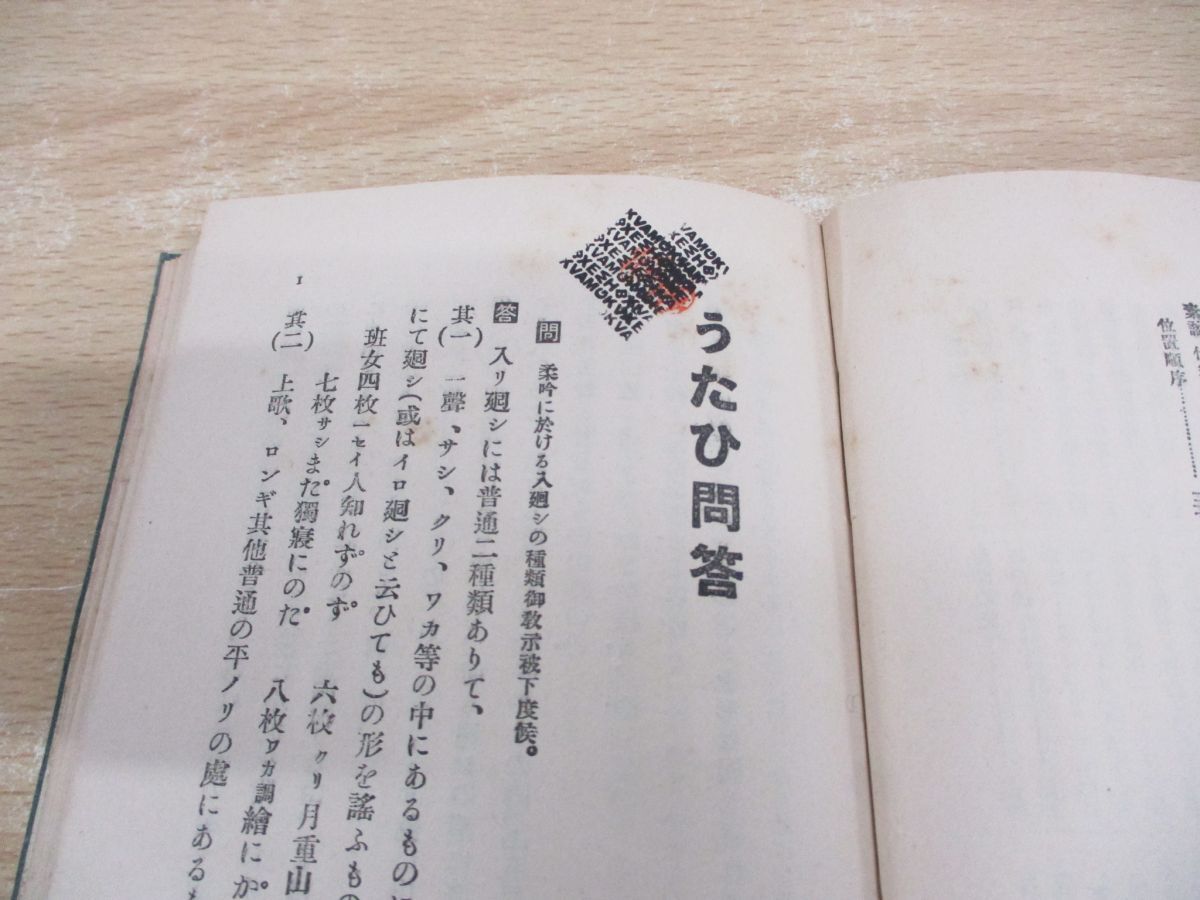 うたひ問答
問 柔吟に於ける入廻シの種類御敎示被下度候。
答 入リ廻シには普通二種類ありて、
其(一) 一聲、サシ、クリ、ワカ等の中にあるもの
にて廻シ(或はイロ廻シと云ひても)の形を謠ふもの
班女四枚一セイ人知れず゚のず 六枚クリ月重山
七枚サシまだ獨寢にのだ 八枚ワカ調繪にが
其(二) 上歌、ロンギ其他普通の平ノリの處にある
1
位置順序